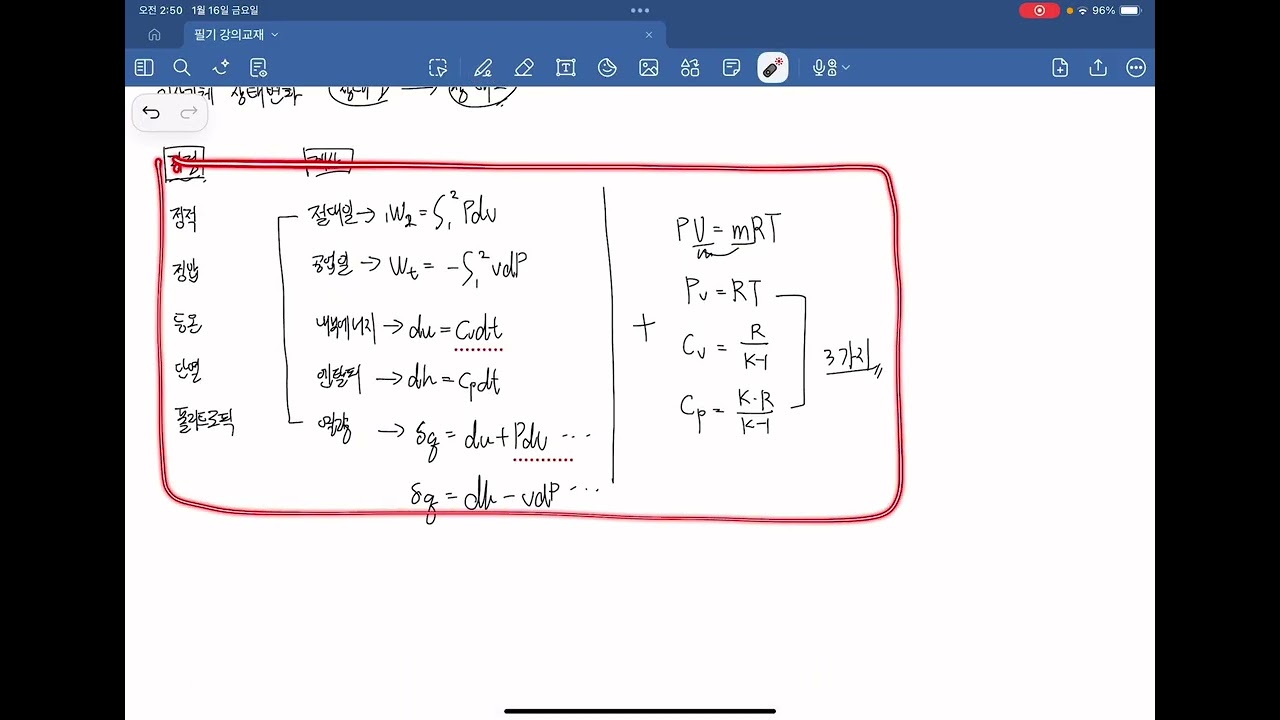 오전 2:50 1월 16일 금요일
96%
필기 강의교재
상태변화
계산
정적
정압
등온
단열
폴리트로픽
절대일 → ₁W₂ = ∫₁² Pdv
공업일 → Wt = -∫₁² vdP
내부에너지 → du = Cvdt
엔탈피 → dh = Cpdt
열량 → δq = du + Pdv ...
δq = dh - vdP ...
+
PV = mRT
Pv = RT
Cv = R/K-1
Cp = K·R/K-1
3가지